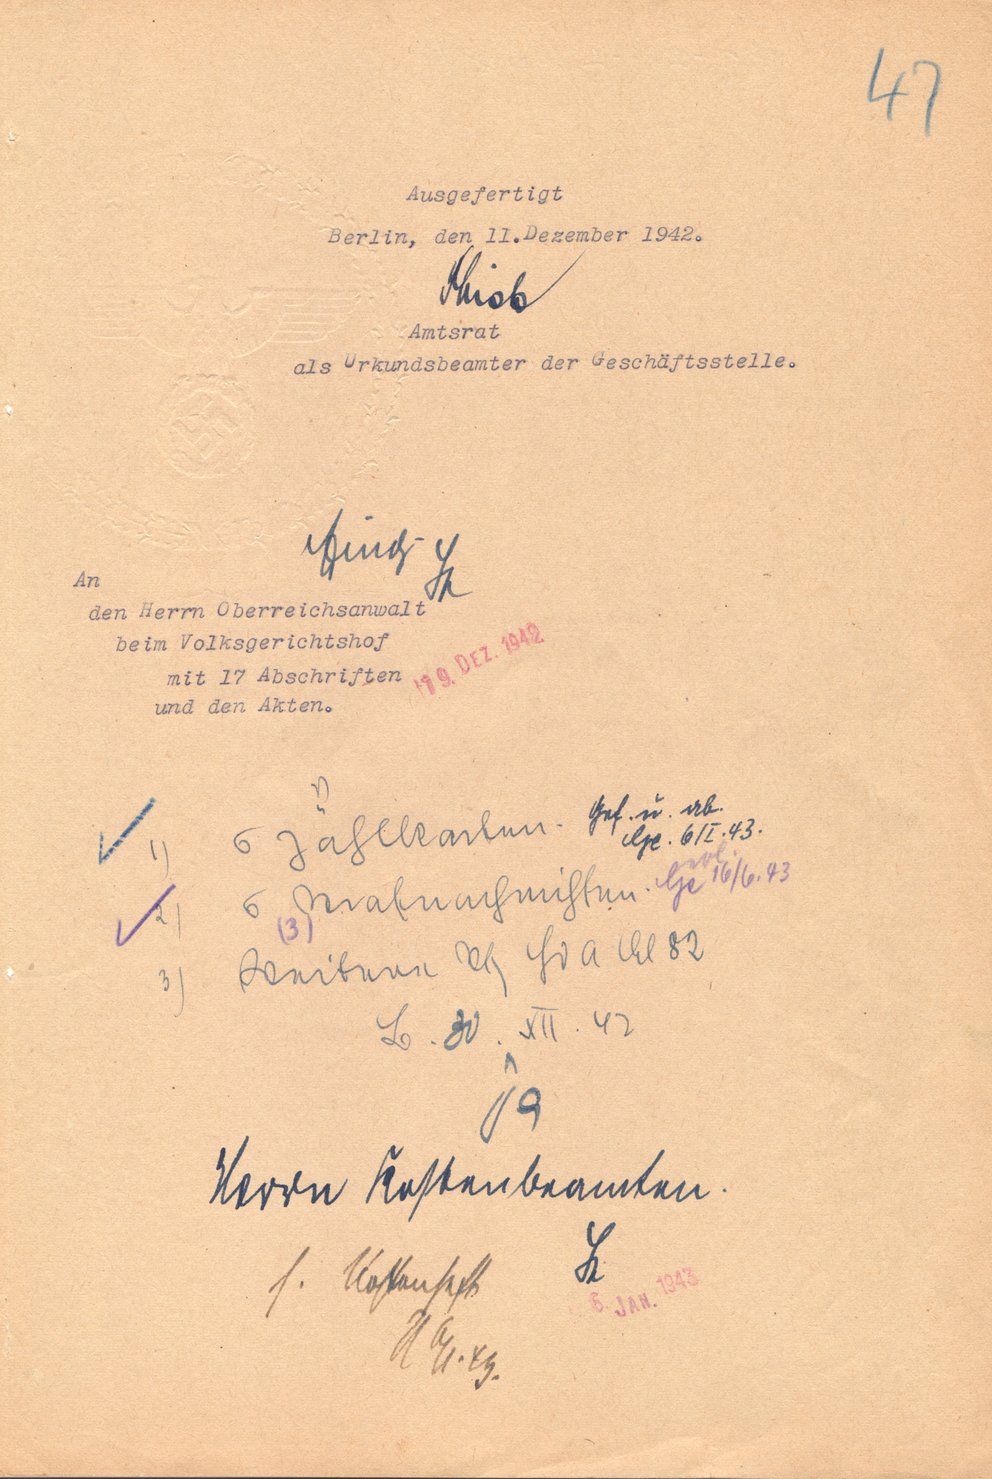 47
Ausgefertigt
Berlin, den 11.Dezember 1942.
Thiele
Amtsrat
als Urkundsbeamter der Geschäftsstelle.
An
den Herrn Oberreichsanwalt
beim Volksgerichtshof
mit 17 Abschriften
und den Akten.
19. DEZ. 1942
1) 6 Zählkarten. Gef. u. ab.
6/I.43.
2) 6 Strafnachrichten. 16/6.43
(3)
3) Weitere
82
30. XII. 42
Herrn Kostenbeamten.
s. Kostenheft
6. JAN. 1943